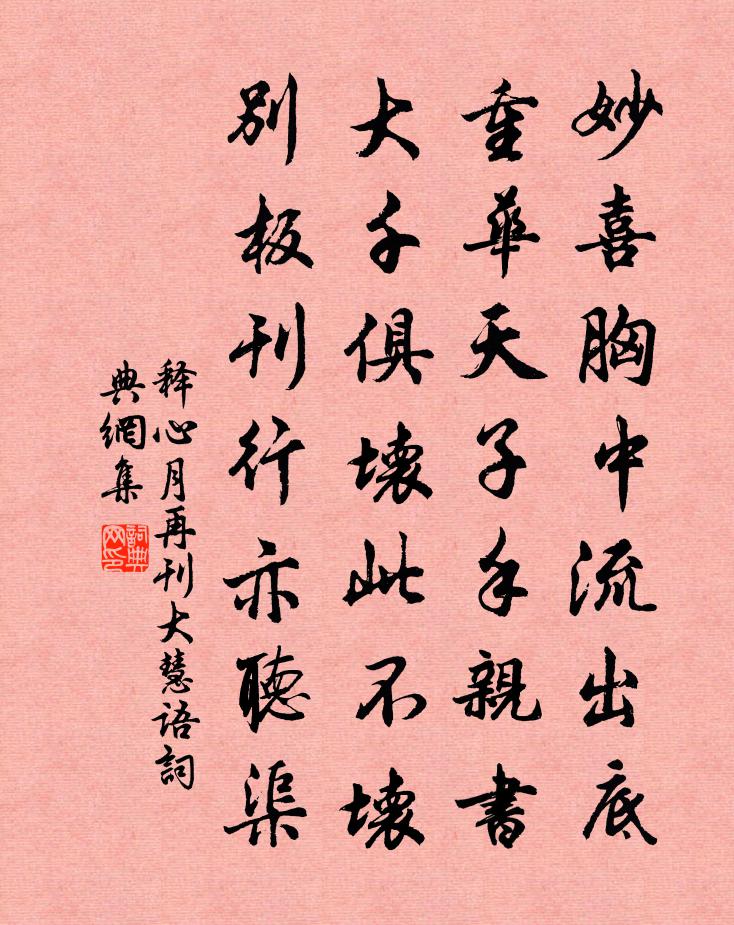 妙喜胸中流出底
重華天子手親書
大千俱壞此不壞
別板刊行亦聽渠
释心月再刊大慧语詞
典網集
詞典
网印